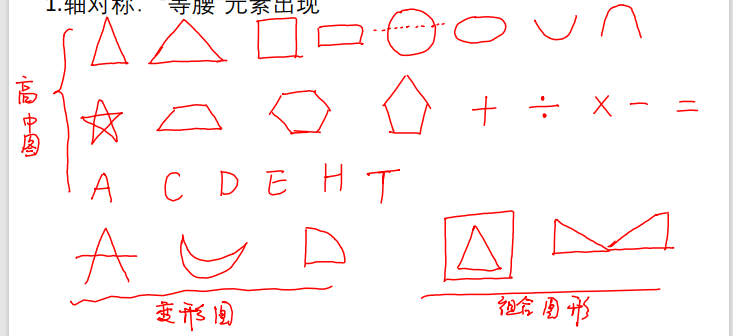 1.轴对称："等腰"元素出现
高中图
+ ÷ × - =
A C D E H T
变形图
组合图形